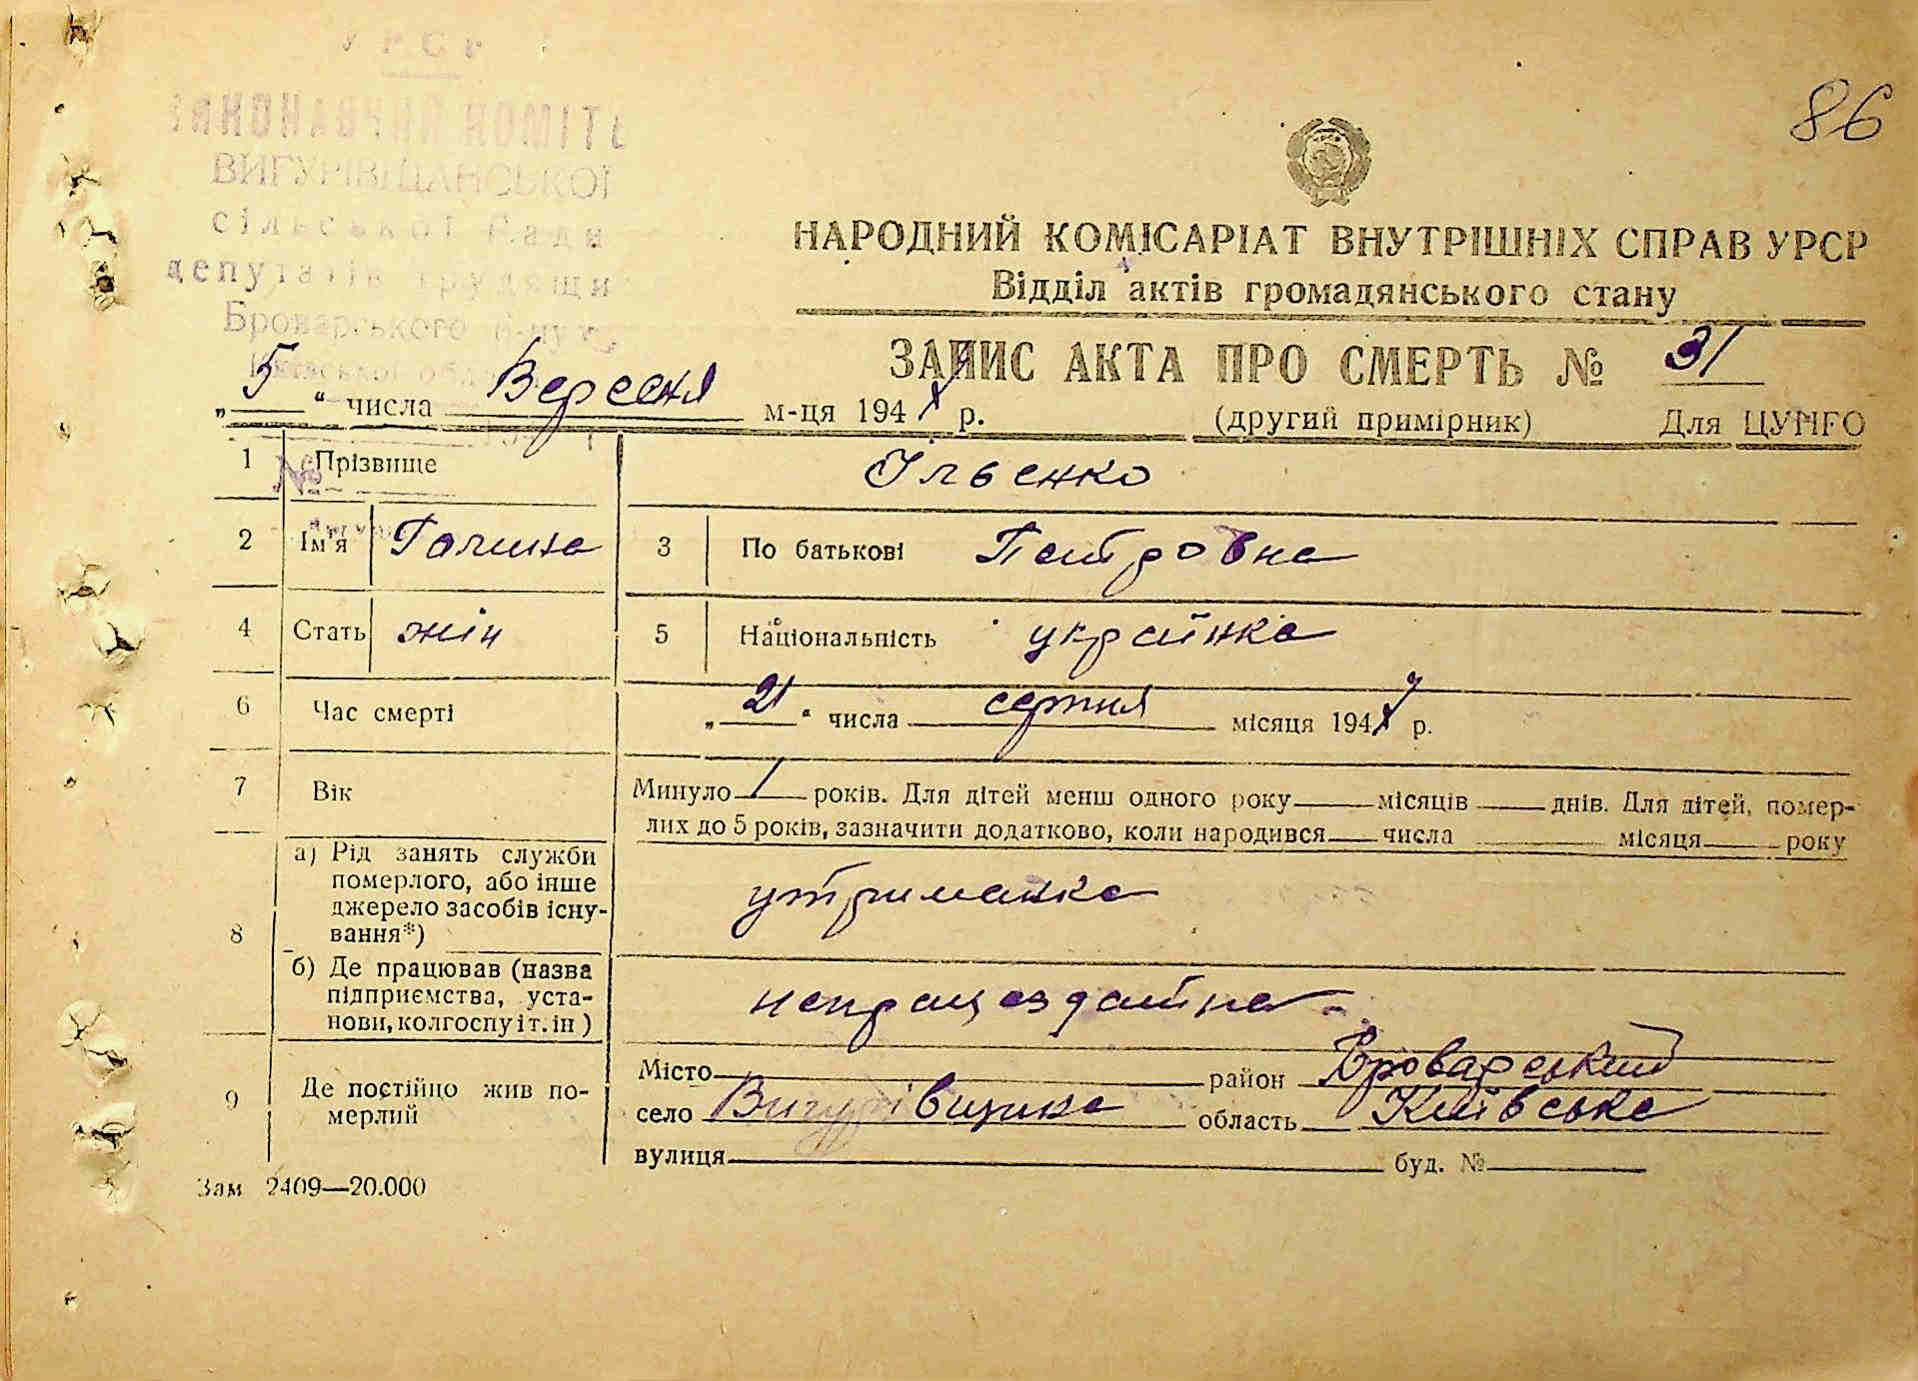 УРСР
ВИКОНАВЧИЙ КОМІТЕ
ВИГУРІВЩАНСЬКОЇ
сільської Ради
депутатів трудящи
Броварського р-ну
Київської обл
86
НАРОДНИЙ КОМІСАРІАТ ВНУТРІШНІХ СПРАВ УРСР
Відділ актів громадянського стану
ЗАПИС АКТА ПРО СМЕРТЬ № 31
„5“ числа Вересня м-ця 194 р.
(другий примірник) Для ЦУНГО
1 Прізвище Ільенко
№
2 Ім'я Галина 3 По батькові Петровна
4 Стать жін 5 Національність українка
6 Час смерті „21“ числа серпня місяця 1947 р.
7 Вік Минуло 1 років. Для дітей менш одного року місяців днів. Для дітей, помер-
лих до 5 років, зазначити додатково, коли народився числа місяця року
8 а) Рід занять служби
померлого, або інше
джерело засобів існу-
вання*)
утриманка
б) Де працював (назва
підприємства, уста-
нови, колгоспу і т. ін)
непрацездатна
9 Де постійно жив по-
мерлий
Місто район Броварський
село Вигурівщина область Київська
вулиця буд. №
Зам 2409—20.000